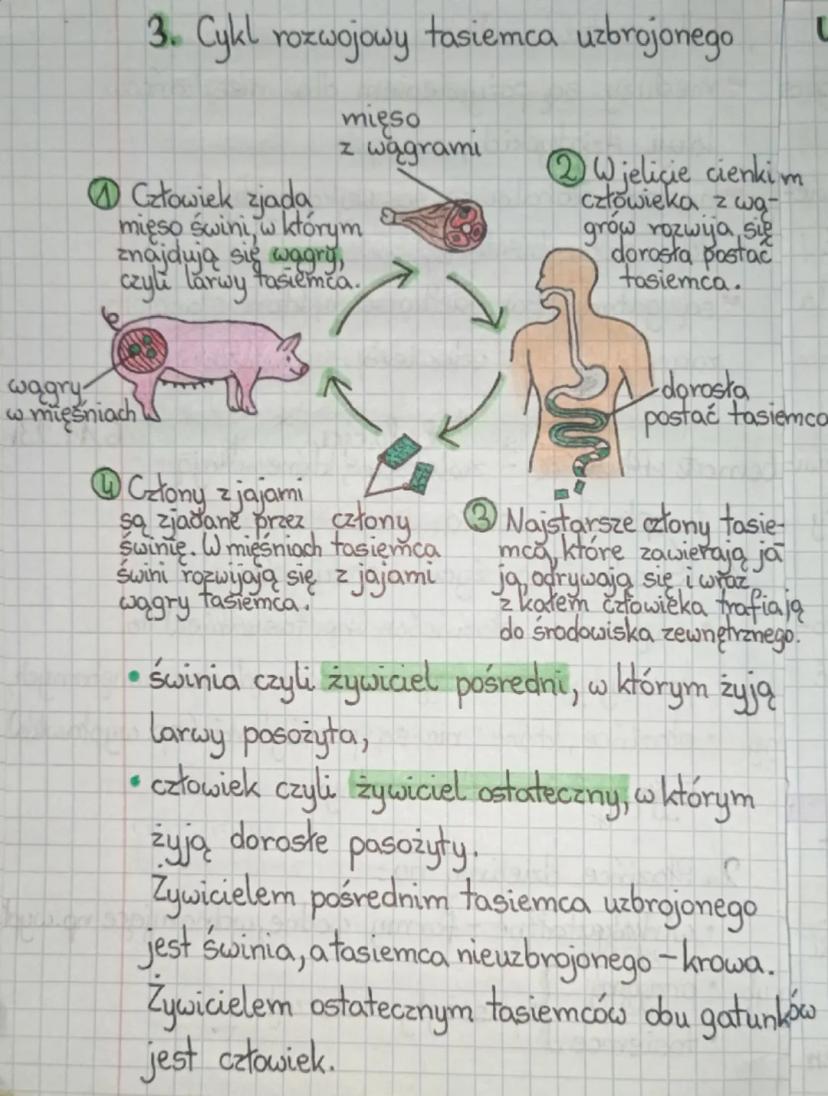 3. Cykl rozwojowy tasiemca uzbrojonego
mięso
z wągrami
1 Człowiek zjada
mięso świni, w którym
znajdują się wągry,
czyli larwy tasiemca.
2 W jelicie cienkim
człowieka z wą-
grów rozwija się
dorosła postać
tasiemca.
wągry
w mięśniach
dorosła
postać tasiemca
4 Człony z jajami
są zjadane przez
świnię. W mięśniach
świni rozwijają się
wągry tasiemca.
człony
tasiemca
z jajami
3 Najstarsze człony tasie-
mca, które zawierają ja
ja, odrywają się i wraz
z kałem człowieka trafiają
do środowiska zewnętrznego.
• świnia czyli żywiciel pośredni, w którym żyją
larwy posożyta,
• człowiek czyli żywiciel ostateczny, w którym
żyją dorosłe pasożyty.
Żywicielem pośrednim tasiemca uzbrojonego
jest świnia, a tasiemca nieuzbrojonego – krowa.
Żywicielem ostatecznym tasiemców obu gatunków
jest człowiek.